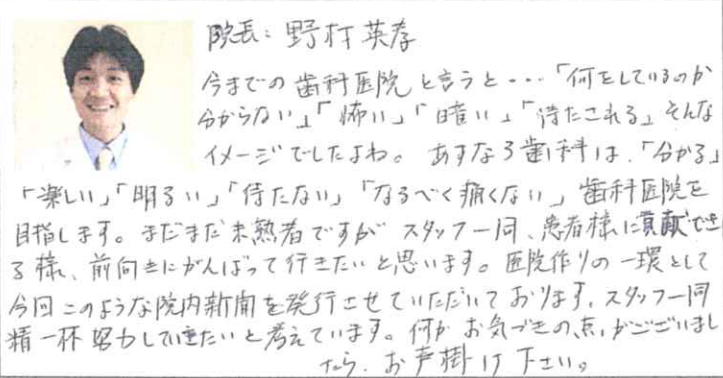 院長：野村英孝
今までの歯科医院と言うと・・・「何をしているのか
分からない」「怖い」「暗い」「待たされる」そんな
イメージでしたよね。あすなろ歯科は、「分かる」
「楽しい」「明るい」「待たない」「なるべく痛くない」歯科医院を
目指します。まだまだ未熟者ですがスタッフ一同、患者様に貢献でき
る様、前向きにがんばって行きたいと思います。医院作りの一環として
今回このような院内新聞を発行させていただいております。スタッフ一同
精一杯努力していきたいと考えています。何かお気づきの点がございまし
たら、お声掛け下さい。